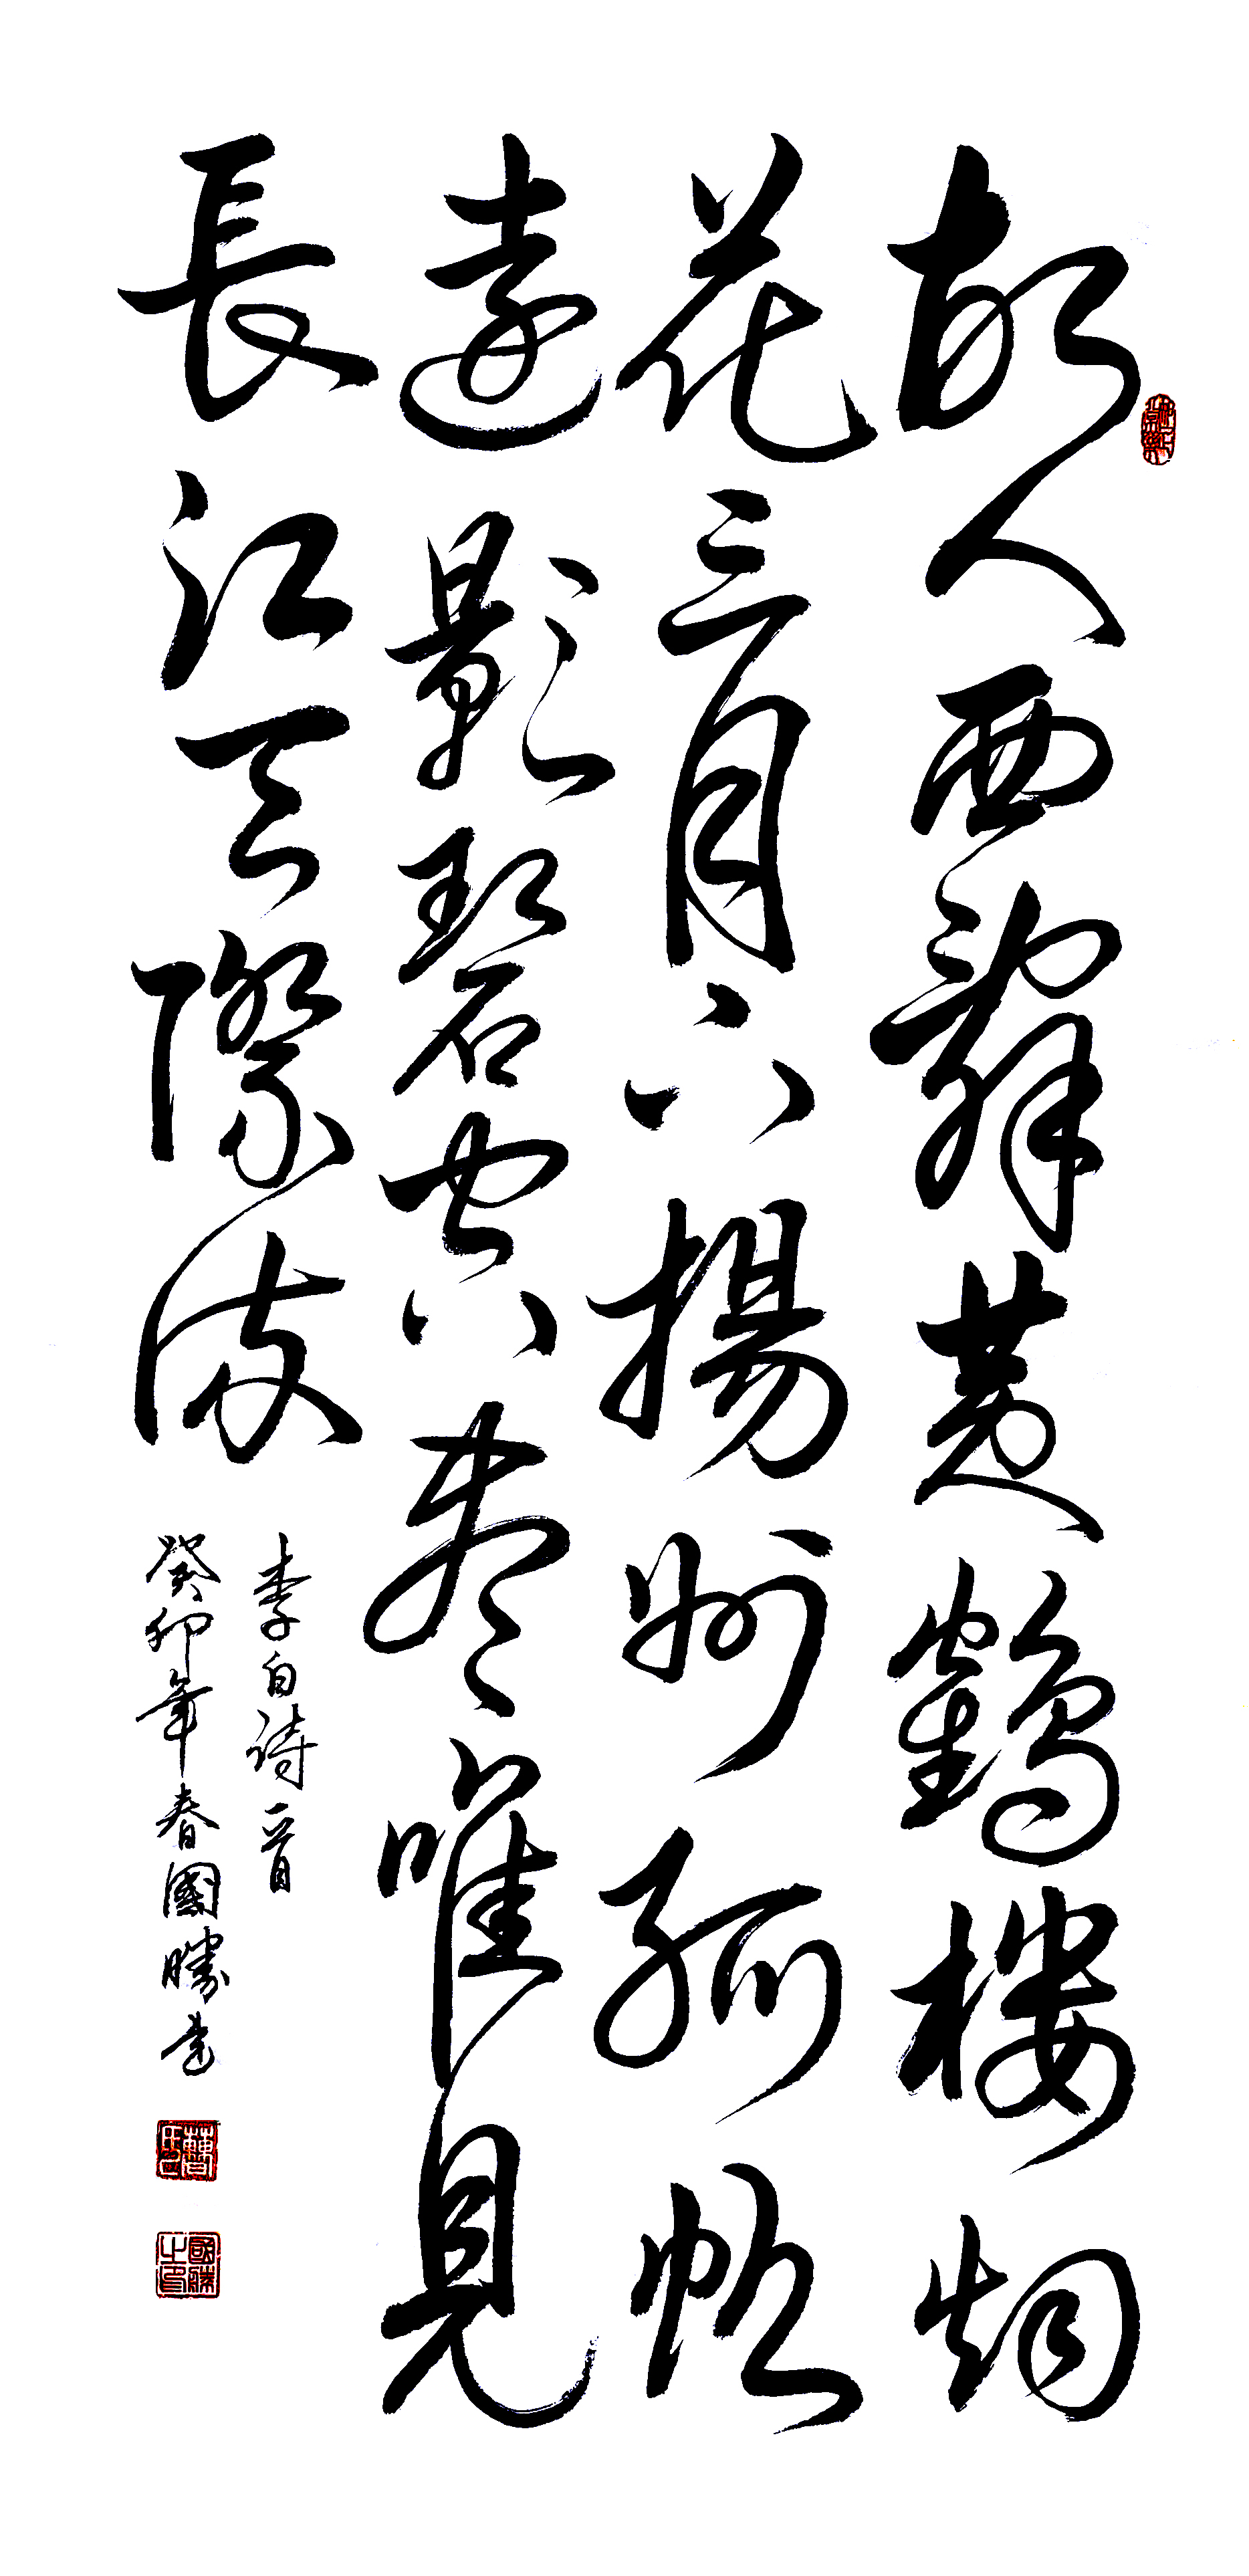 故人西辭黄鶴樓烟
花三月下揚州孤帆
遠影碧空盡唯見
長江天際流
李白詩一首
癸卯年春國勝書
國勝之印